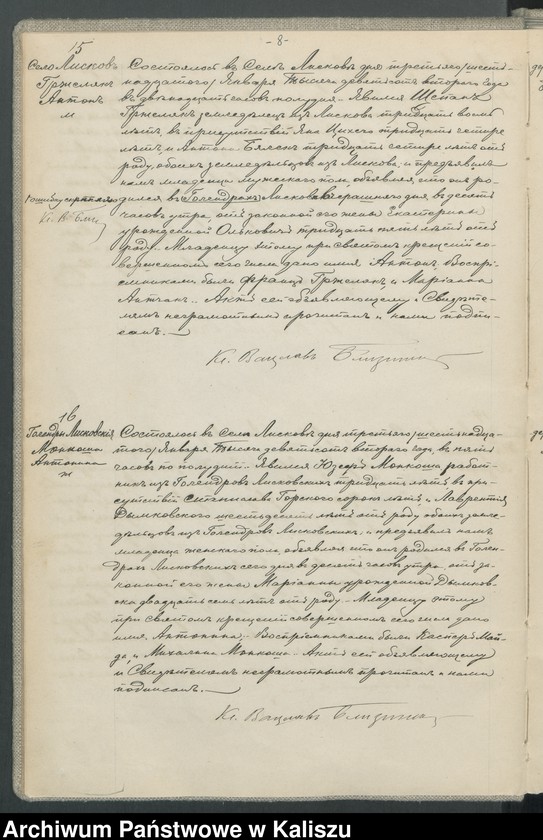 -8-
15
Село Лисковъ
Гржелякъ
Антонъ
м
Состоялось въ Селѣ Лисковѣ дня третьяго /шест-
надцатаго/ Января Тысяча девятьсотъ втораго года
въ двѣнадцать часовъ полудня. Явился Щепанъ
Гржелякъ, земледѣлецъ изъ Лискова тридцать восемь
лѣтъ, въ присутствіи Яна Цихего тридцать четыре
лѣтъ, и Антона тридцать четыре лѣтъ отъ
роду, обоихъ земледѣльцовъ изъ Лискова, и предъявилъ
намъ младенца мужескаго пола, объявляя, что онъ ро-
дился въ Голендрахъ Лисковѣ вчерашняго дня, въ десять
часовъ утра, отъ законной его жены Екатерины
урожденной тридцать пять лѣтъ отъ
роду. Младенцу этому при святомъ крещеніи со-
вершенномъ сего числа дано имя Антонъ. Воспрі-
емниками были Францъ Гржелякъ и Маріанна
Антчакъ. Актъ сей объявляющему и Свидѣте-
лямъ неграмотнымъ прочитанъ и нами подпи-
санъ.
Кс. Вацлавъ
16
Голендры Лисковскія
Монкоша
Антонина
ж
Состоялось въ Селѣ Лисковѣ дня третьяго /шестнадца-
таго/ Января Тысяча девятьсотъ втораго года, въ пять
часовъ по полудни. Явился Юзефъ Монкоша работ-
никъ изъ Голендровъ Лисковскихъ тридцать лѣтъ въ при-
сутствіи Станислава Горскаго сорокъ лѣтъ и Лаврентія
Дымковскаго шестьдесятъ лѣтъ отъ роду обоихъ земле-
дѣльцовъ изъ Голендровъ Лисковскихъ, и предъявилъ намъ
младенца женскаго пола, объявляя что онъ родился въ Голен-
драхъ Лисковскихъ сего дня въ десять часовъ утра, отъ за-
конной его жены Маріанны урожденной Дымков-
ска двадцать семь лѣтъ отъ роду. Младенцу этому
при святомъ крещеніи совершенномъ сего числа дано
имя Антонина. Воспріемниками были Касперъ Май-
да, и Михалина Монкоша. Актъ сей объявляющему
и Свидѣтелямъ неграмотнымъ прочитанъ и нами
подписанъ.
Кс. Вацлавъ
Archiwum Państwowe w Kaliszu